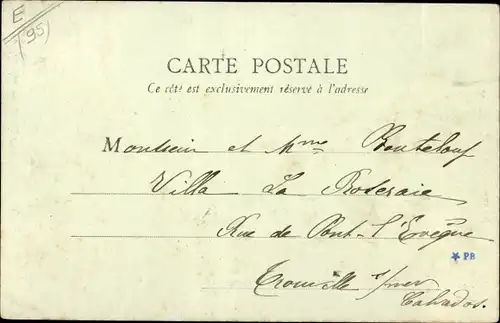 E
(95)
CARTE POSTALE
Ce côté est exclusivement réservé à l'adresse
Monsieur et Mme Bouteloup
Villa La Roseraie
Rue de Pont-l'Evêque
PB
Trouville s/mer
Calvados.